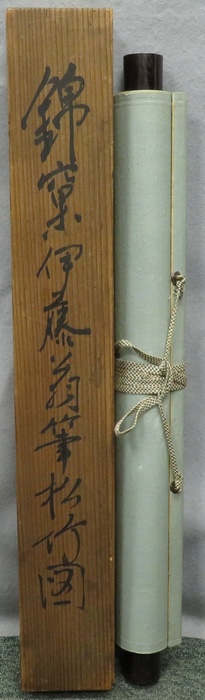 錦窠伊藤翁筆松竹図